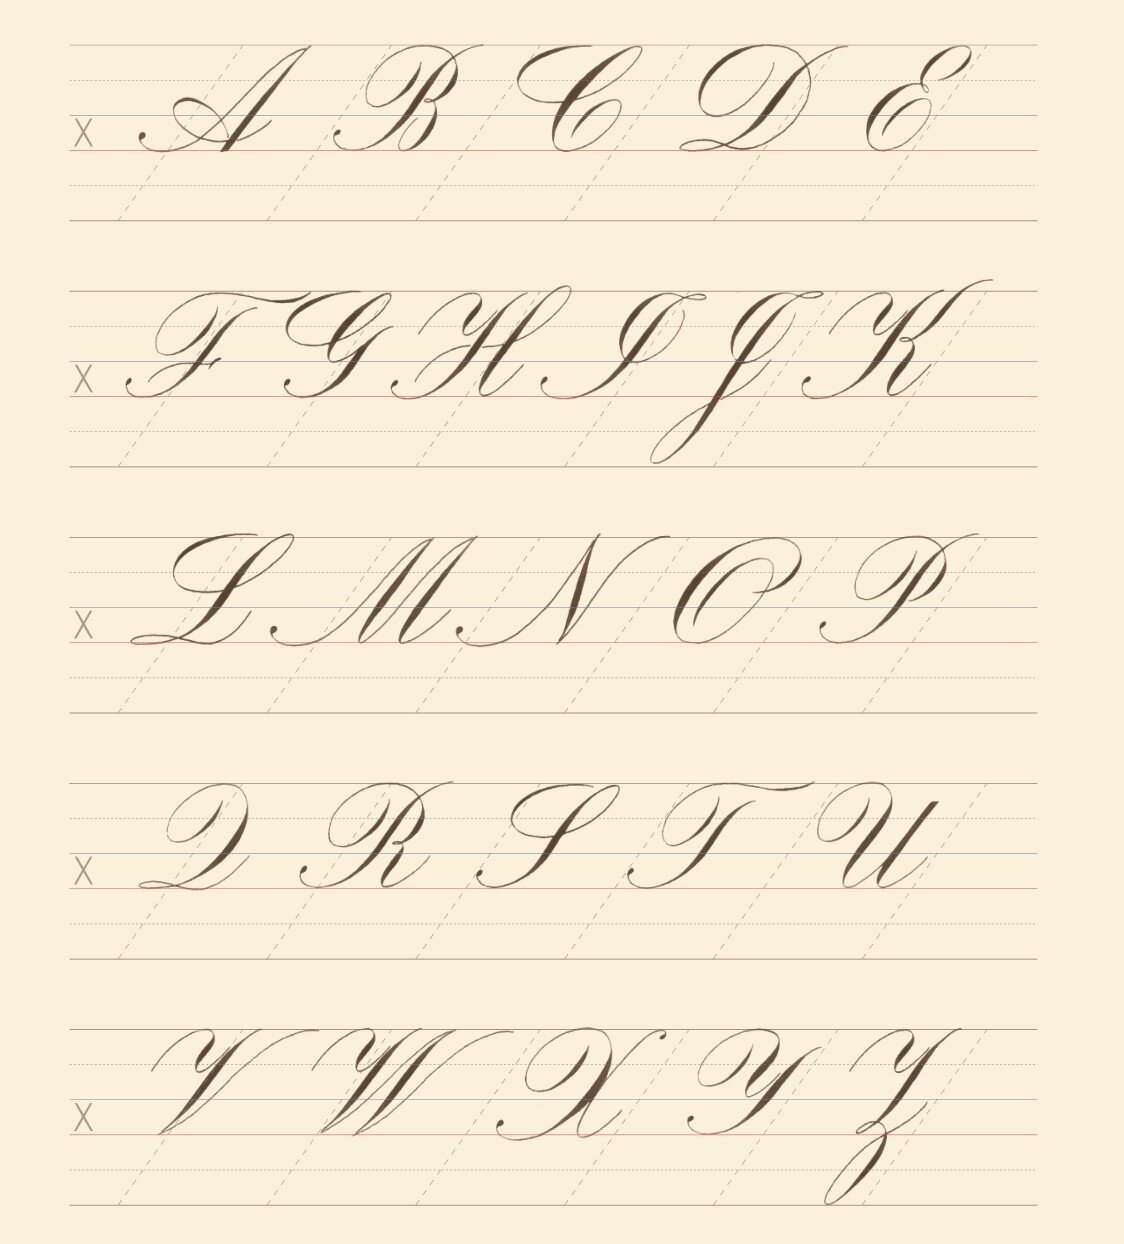 X A B C D E
X F G H I J K
X L M N O P
X Q R S T U
X V W X Y Z